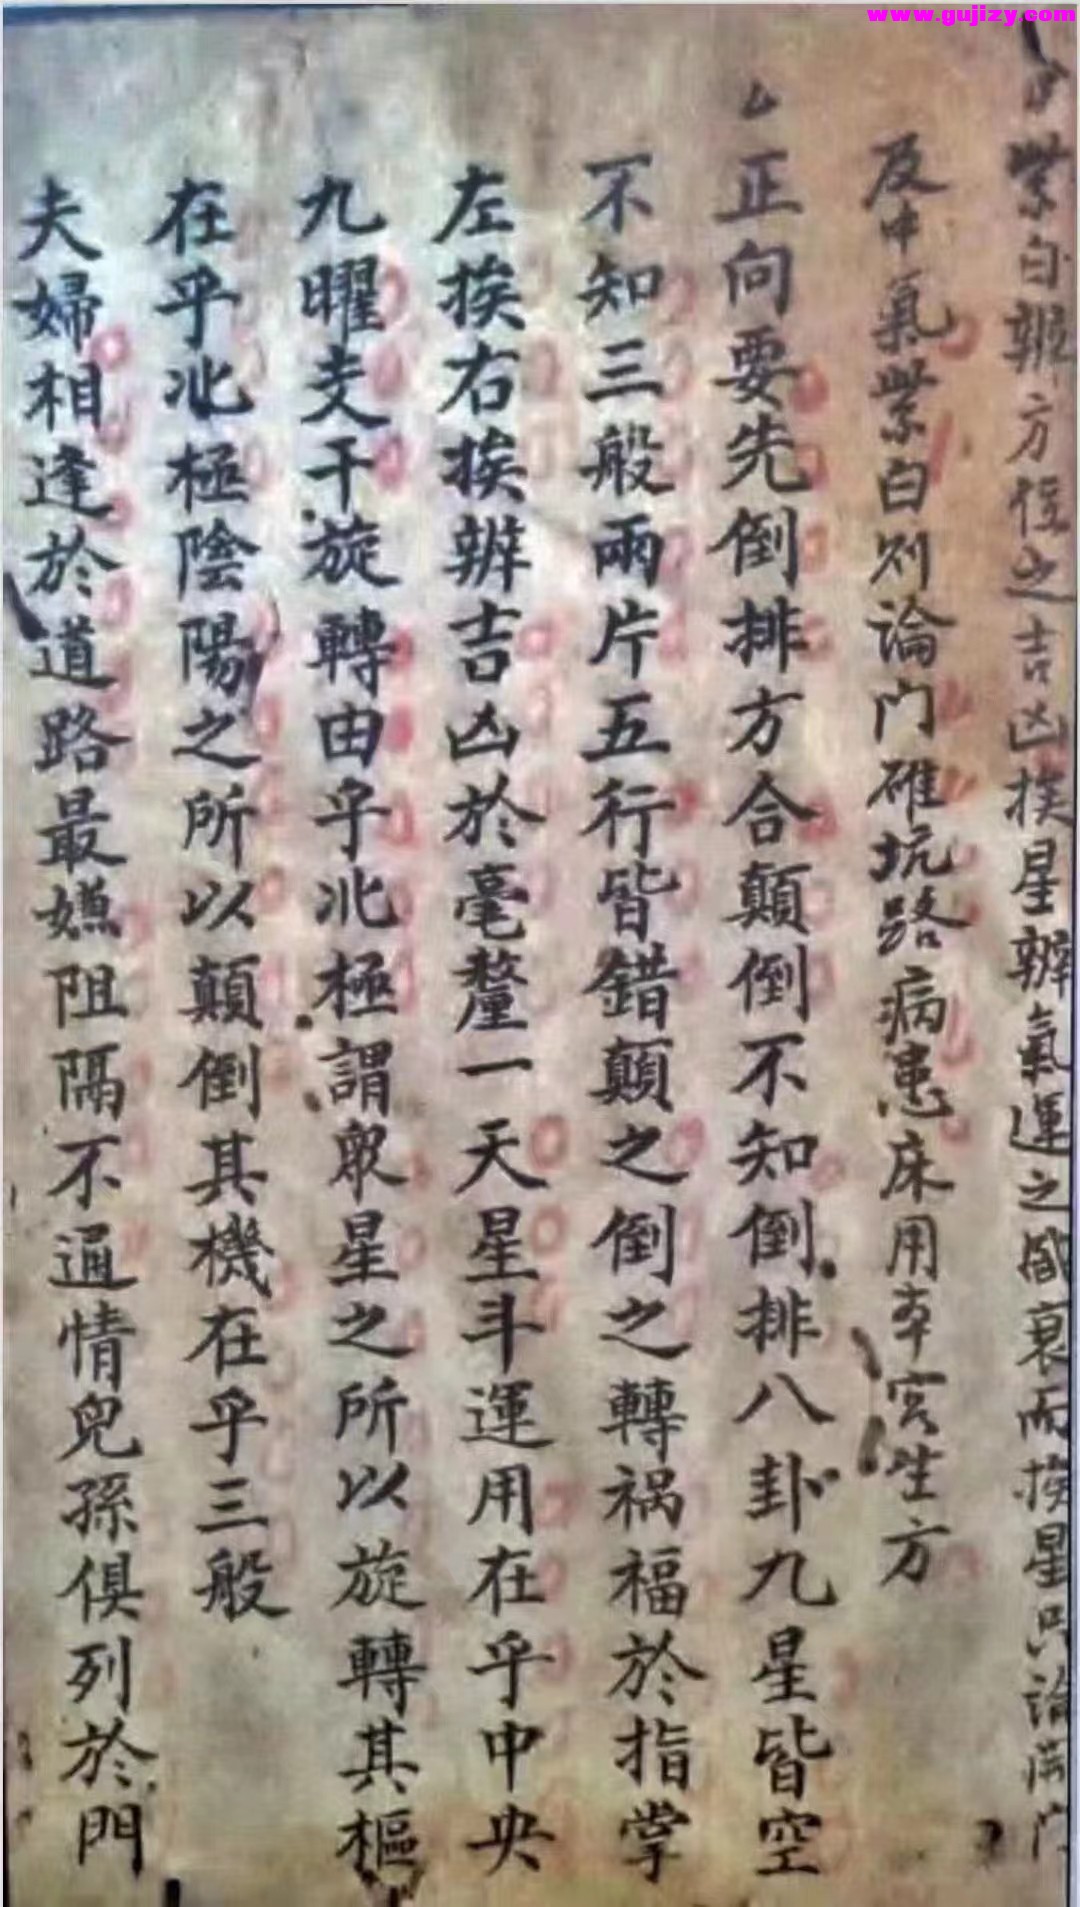 www.gujizy.com
紫白辨方位之吉凶挨星辦氣運之盛衰而挨星只論門
及中氣紫白别論门碓坑路病患床用本宮生方
正向要先倒排方合顛倒不知倒排八卦九星皆空
不知三般兩片五行皆錯顛之倒之轉禍福於指掌
左挨右挨辨吉凶於毫釐一天星斗運用在乎中央
九曜支干旋轉由乎北極謂眾星之所以旋轉其樞
在乎北極陰陽之所以顛倒其機在乎三般
夫婦相逢於道路最嫌阻隔不通情兒孫俱列於門